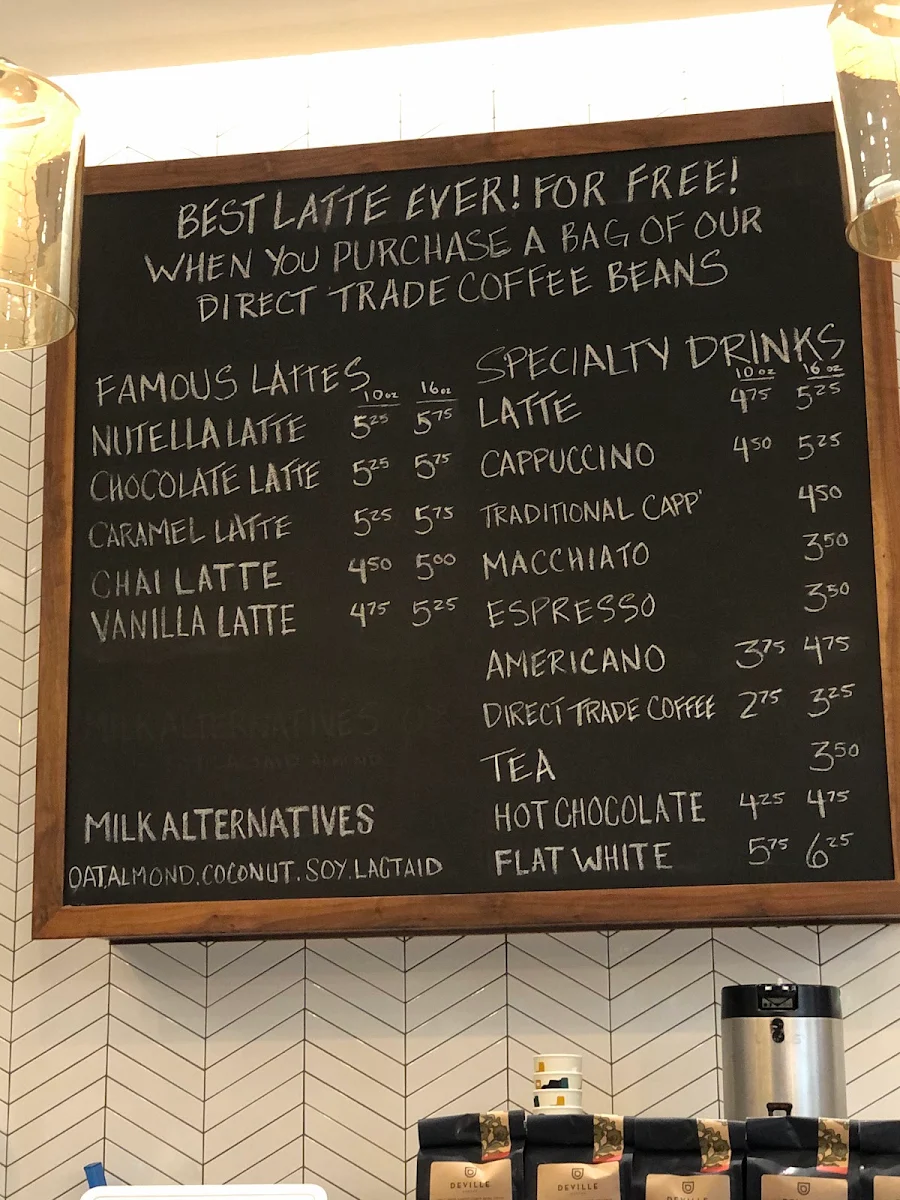 BEST LATTE EVER! FOR FREE!
WHEN YOU PURCHASE A BAG OF OUR
DIRECT TRADE COFFEE BEANS
FAMOUS LATTES
10oz 16oz
NUTELLA LATTE 5.25 5.75
CHOCOLATE LATTE 5.25 5.75
CARAMEL LATTE 5.25 5.75
CHAI LATTE 4.50 5.00
VANILLA LATTE 4.75 5.25
MILK ALTERNATIVES
MILK ALTERNATIVES
OAT.ALMOND.COCONUT.SOY.LACTAID
SPECIALTY DRINKS
10 oz 16 oz
LATTE 4.75 5.25
CAPPUCCINO 4.50 5.25
TRADITIONAL CAPP' 4.50
MACCHIATO 3.50
ESPRESSO 3.50
AMERICANO 3.75 4.75
DIRECT TRADE COFFEE 2.75 3.25
TEA 3.50
HOT CHOCOLATE 4.25 4.75
FLAT WHITE 5.75 6.25
DEVILLE
DEVILLE
DEVILLE